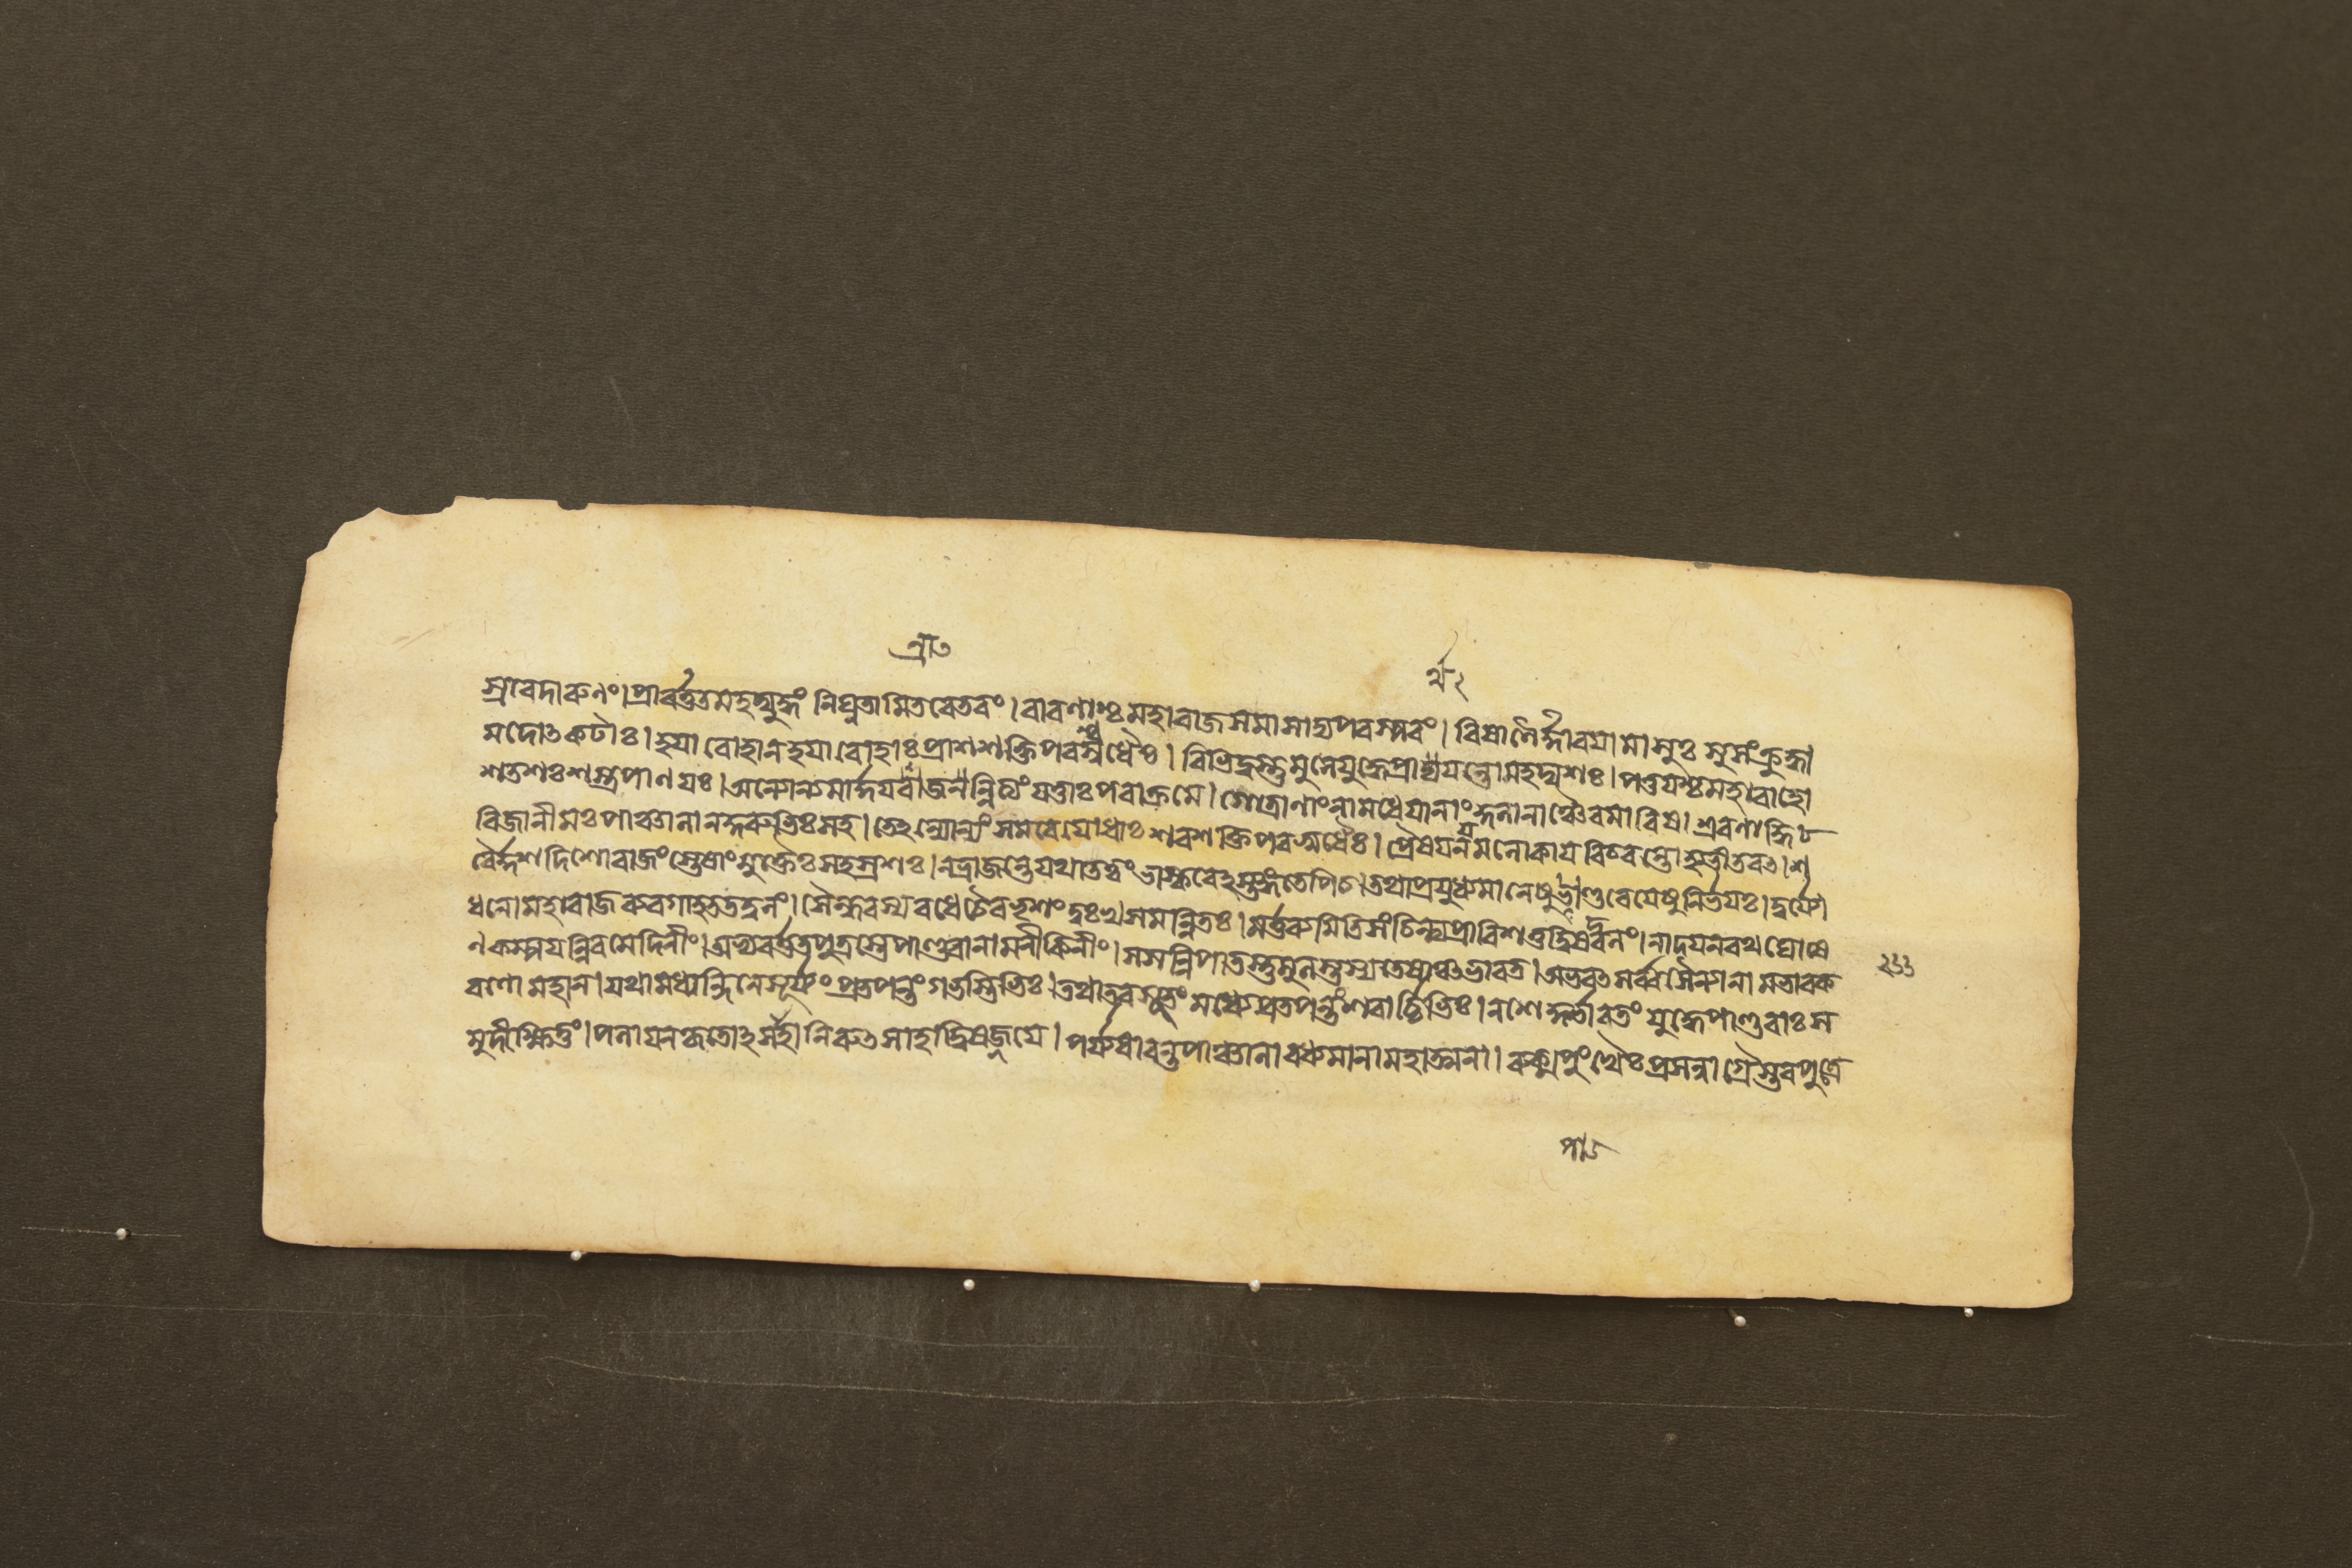 স্রাবেদারুণং।প্রাবর্ত্ততমহদ্যুদ্ধং নিঘ্নতামিতরেতরং।বারণাশ্চ মহারাজসমাসাদ্যপরস্পরং। বিষাণৈর্দ্দারয়ামাসুঃ সুসংক্রুদ্ধা
মদোৎকটাঃ। হয়ারোহানহয়ারোহাঃ প্রাসশক্তিপরশ্বধৈঃ। বিভিদুস্তুমুলেযুদ্ধেপ্রার্থয়ন্তোমহদ্যশঃ। পত্তয়শ্চমহাবাহো
শতশঃশস্ত্রপাণয়ঃ। অন্যোন্যমার্দ্দয়রাজন্নিত্যং যত্তাঃপরাক্রমে। গোত্রাণাংনামধেয়ানাংকুলানাঞ্চৈবমারিষ। শ্রবণাদ্ধি
বিজানীমঃপাঞ্চালানানকুরুভিঃসহ। তেহন্যোন্যং সমরেযোধাঃ শরশক্তিপরশ্বধৈঃ। প্রৈষয়নযমলোকায় বিচরন্তোহ্যভীতবত।শ
রৈর্দ্দশদিশোরাজংস্তেষাংমুক্তৈঃসহস্রশঃ। নভ্রাজন্তেযথাতত্ত্বং ভাস্করেহস্তঙ্গতেপিচ।তথাপ্রযুধ্যমানেষুপাণ্ডবেয়েষুনির্ভয়ঃ।দুর্য্যো
ধনোমহারাজব্যবগাহততদ্বলং। সৈন্ধবস্যবধেচৈবভৃশং দুঃখসমন্বিতঃ। মর্ত্তব্যমিতিসংচিন্ত্যপ্রাবিশত্তুদ্বিষদ্বলং।নাদয়নরথঘোষে
ণকম্পয়ন্নিবমেদিনীং।অভ্যবর্ত্ততপুত্রস্তেপাণ্ডবানামনীকিনীং। সসন্নিপাতস্তুমুলস্তস্যতেষাঞ্চভারত।অভবৎসর্ব্বসৈন্যানামভাবক
রণোমহান।যথামধ্যন্দিনেসূর্য্যং প্রতপন্তংগভস্তিভিঃ।তথাতবসুতং মধ্যেপ্রতপন্তংশরার্চ্চিভিঃ। নশেকুর্ভারতং যুদ্ধেপাণ্ডবাঃস
মুদীক্ষিতুং। পলায়নকৃতোৎসাহানিরুৎসাহাদ্বিষজ্জয়ে। পর্য্যধাবন্তপাঞ্চালাবধ্যমানামহাত্মনা। রুক্মপুংখৈঃপ্রসন্নাগ্রৈস্তবপুত্রে